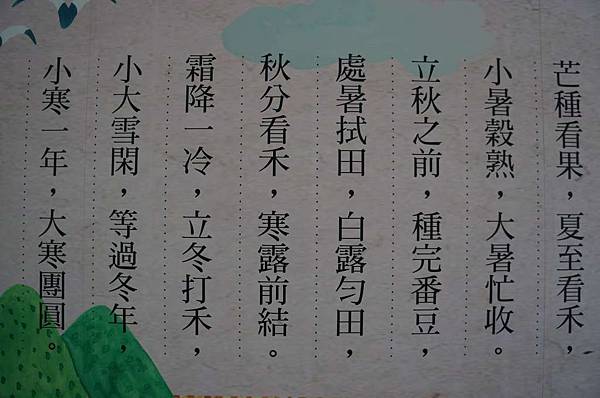 芒種看果，夏至看禾，
小暑穀熟，大暑忙收。
立秋之前，種完番豆，
處暑拭田，白露勻田，
秋分看禾，寒露前結。
霜降一冷，立冬打禾，
小大雪閑，等過冬年，
小寒一年，大寒團圓。